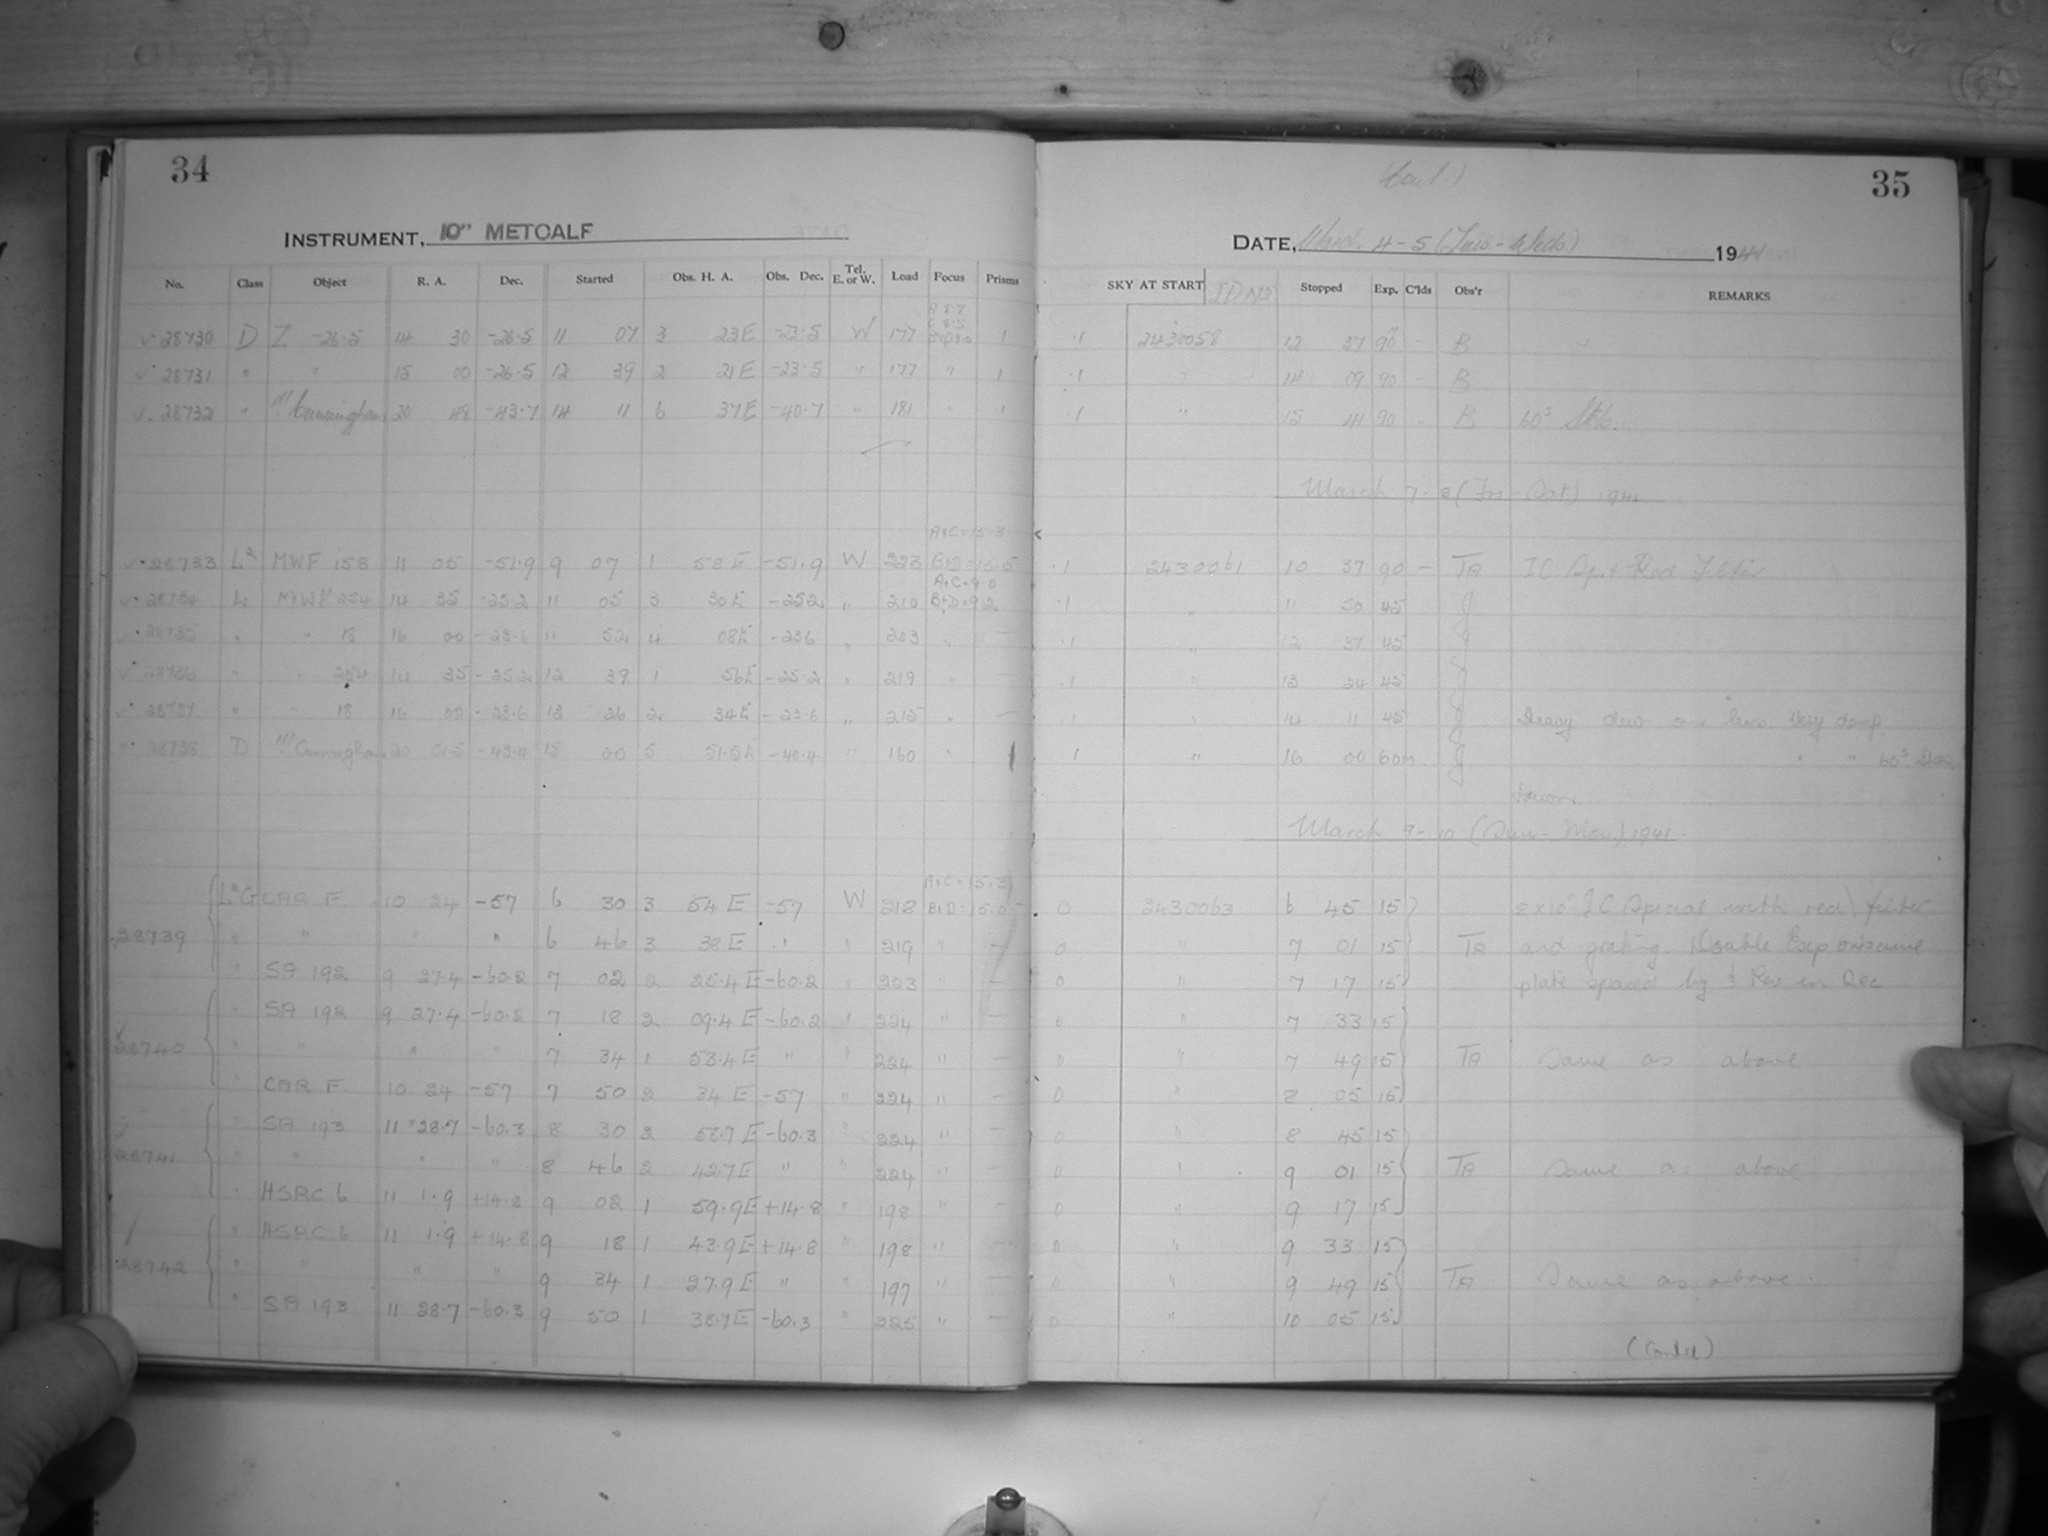 34
INSTRUMENT, 10" METCALF
No. Class Object R. A. Dec. Started Obs. H. A. Obs. Dec. Tel. E. or W. Load Focus Prisms
28730 D Z -26.5 14 30 -26.5 11 07 3 23E -23.5 W 177 1
28731 " " 15 00 -26.5 12 39 2 21E -23.5 " 177 " 1
28732 " Cunningham 20 48 -43.7 14 11 6 37E -40.7 " 181 " 1
A+C=15.3
28733 L² MWF 158 11 05 -51.9 9 07 1 58E -51.9 W 223 B+D=15.5
A+C=9.0
28734 L MWF 254 14 35 -25.2 11 05 3 30E -25.2 " 210 B+D=9.2
28735 " " 18 16 00 -23.6 11 52 4 08E -23.6 " 203 "
28736 " " 254 14 35 -25.2 12 39 1 56E -25.2 " 219 "
28737 " " 18 16 00 -23.6 13 26 2 34E -23.6 " 215 " —
28738 D Cunningham 20 51.5 -43.4 15 00 5 51.5E -40.4 " 160 " 1
A+C=15.3
L²G CAR F. 10 24 -57 6 30 3 54E -57 W 218 B+D=15.5
28739 " " " 6 46 3 38E " " 219 " —
" SA 192 9 27.4 -60.2 7 02 2 25.4E -60.2 " 223 " —
" SA 192 9 27.4 -60.2 7 18 2 09.4E -60.2 " 224 " —
28740 " " " " 7 34 1 53.4E " " 224 " —
" CAR F. 10 24 -57 7 50 2 34E -57 " 224 " —
" SA 193 11 28.7 -60.3 8 30 2 58.7E -60.3 " 224 " —
28741 " " " " 8 46 2 42.7E " " 224 " —
" HSRC 6 11 1.9 +14.8 9 02 1 59.9E +14.8 " 198 " —
" HSRC 6 11 1.9 +14.8 9 18 1 43.9E +14.8 " 198 " —
28742 " " " " 9 34 1 27.9E " " 197 " —
" SA 193 11 28.7 -60.3 9 50 1 38.7E -60.3 " 225 " —
35
DATE, March 4-5 (Tues-Weds) 1941
SKY AT START J.D. No Stopped Exp. C'lds Obs'r REMARKS
.1 2430058 12 37 90 - B
.1 " 14 09 90 - B
.1 " 15 41 90 - B 60s
March 7-8 (Fri-Sat) 1941
.1 2430061 10 37 90 - TA IC Sp. + Red Filter
.1 " 11 50 45 J
.1 " 12 37 45
.1 " 13 24 45
.1 " 14 11 45 J Heavy dew on lens. Very damp.
.1 " 16 00 60m J " " 60s
Dawn.
March 9-10 (Sun-Mon) 1941
0 2430063 6 45 15 8x10" IC Special with red filter
0 " 7 01 15 TA and grating. Double Exp on same
0 " 7 17 15 plate spaced by Rev in Dec
0 " 7 33 15
0 " 7 49 15 TA Same as above
0 " 8 05 15
0 " 8 45 15
0 " 9 01 15 TA Same as above
0 " 9 17 15
0 " 9 33 15
0 " 9 49 15 TA Same as above.
0 " 10 05 15
(Contd)